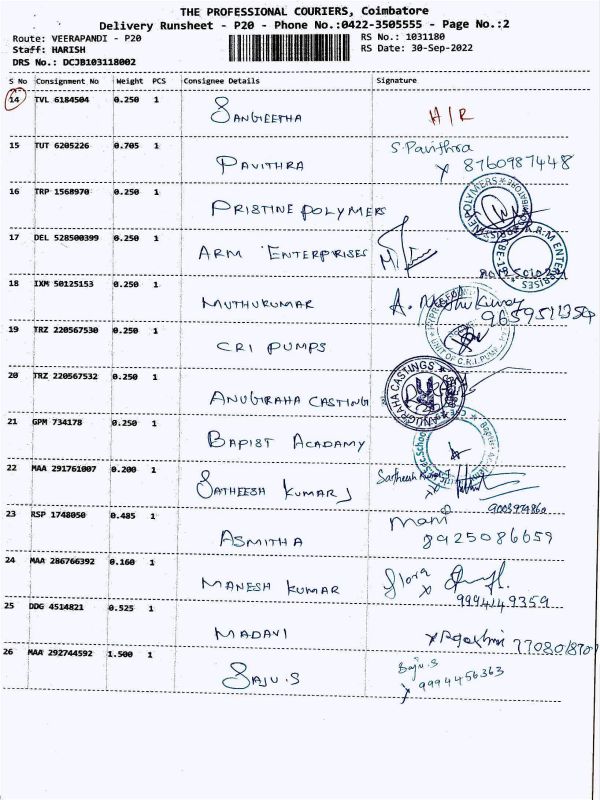 THE PROFESSIONAL COURIERS, Coimbatore
Delivery Runsheet - P20 - Phone No.:0422-3505555 - Page No.:2
Route: VEERAPANDI - P20 RS No.: 1031180
Staff: HARISH RS Date: 30-Sep-2022
DRS No.: DCJB103118002
S No Consignment No Weight PCS Consignee Details Signature
14 TVL 6184504 0.250 1 SANGEETHA H/R
15 TUT 6205226 0.705 1 PAVITHRA S.Pavithra
x 8760987448
16 TRP 1568970 0.250 1 PRISTINE POLYMERS
17 DEL 528500399 0.250 1 ARM ENTERPRISES
18 IXM 50125153 0.250 1 MUTHUKUMAR A. Muthukumar
19 TRZ 220567530 0.250 1 CRI PUMPS
20 TRZ 220567532 0.250 1 ANUGRAHA CASTING ANUGRAHA CASTINGS
21 GPM 734178 0.250 1 BAPIST ACADAMY
22 MAA 291761007 0.200 1 SATHEESH KUMAR J Satheesh Kumar J
9003974860
23 RSP 1748050 0.485 1 ASMITHA Mani
8925086659
24 MAA 286766392 0.160 1 MANESH KUMAR Flora
x 9994149359
25 DDG 4514821 0.525 1 MADANI
26 MAA 292744592 1.500 1 SAJU.S Saju.S
x 9994456363